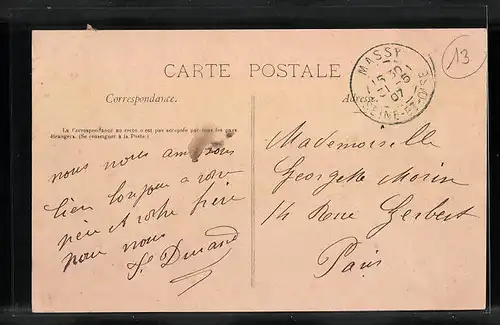 CARTE POSTALE
Correspondance.
Adresse.
MASSY
15 30
31 -5
07
SEINE-ET-OISE
13
La Correspondance au recto n'est pas acceptée par tous les pays
étrangers. (Se renseigner à la Poste.)
nous nous amusons
bien bonjour à votre
père et votre frère
pour nous
Durand
Mademoiselle
Georgette Morin
14 Rue Gerbert
Paris